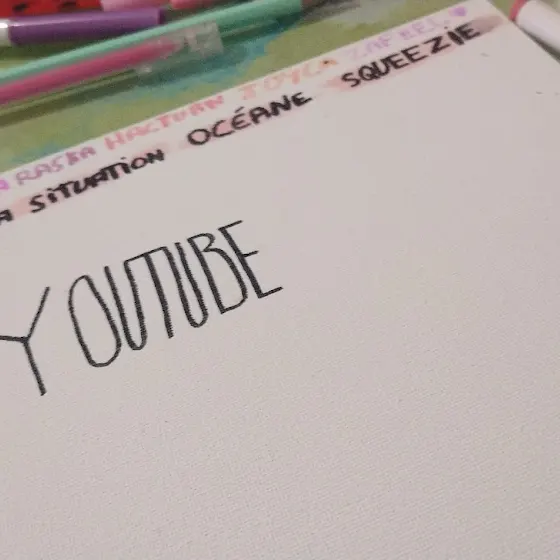 RASTA HACTUAN JOYCA ZAFREL
A SITUATION OCÉANE SQUEEZIE
YOUTUBE